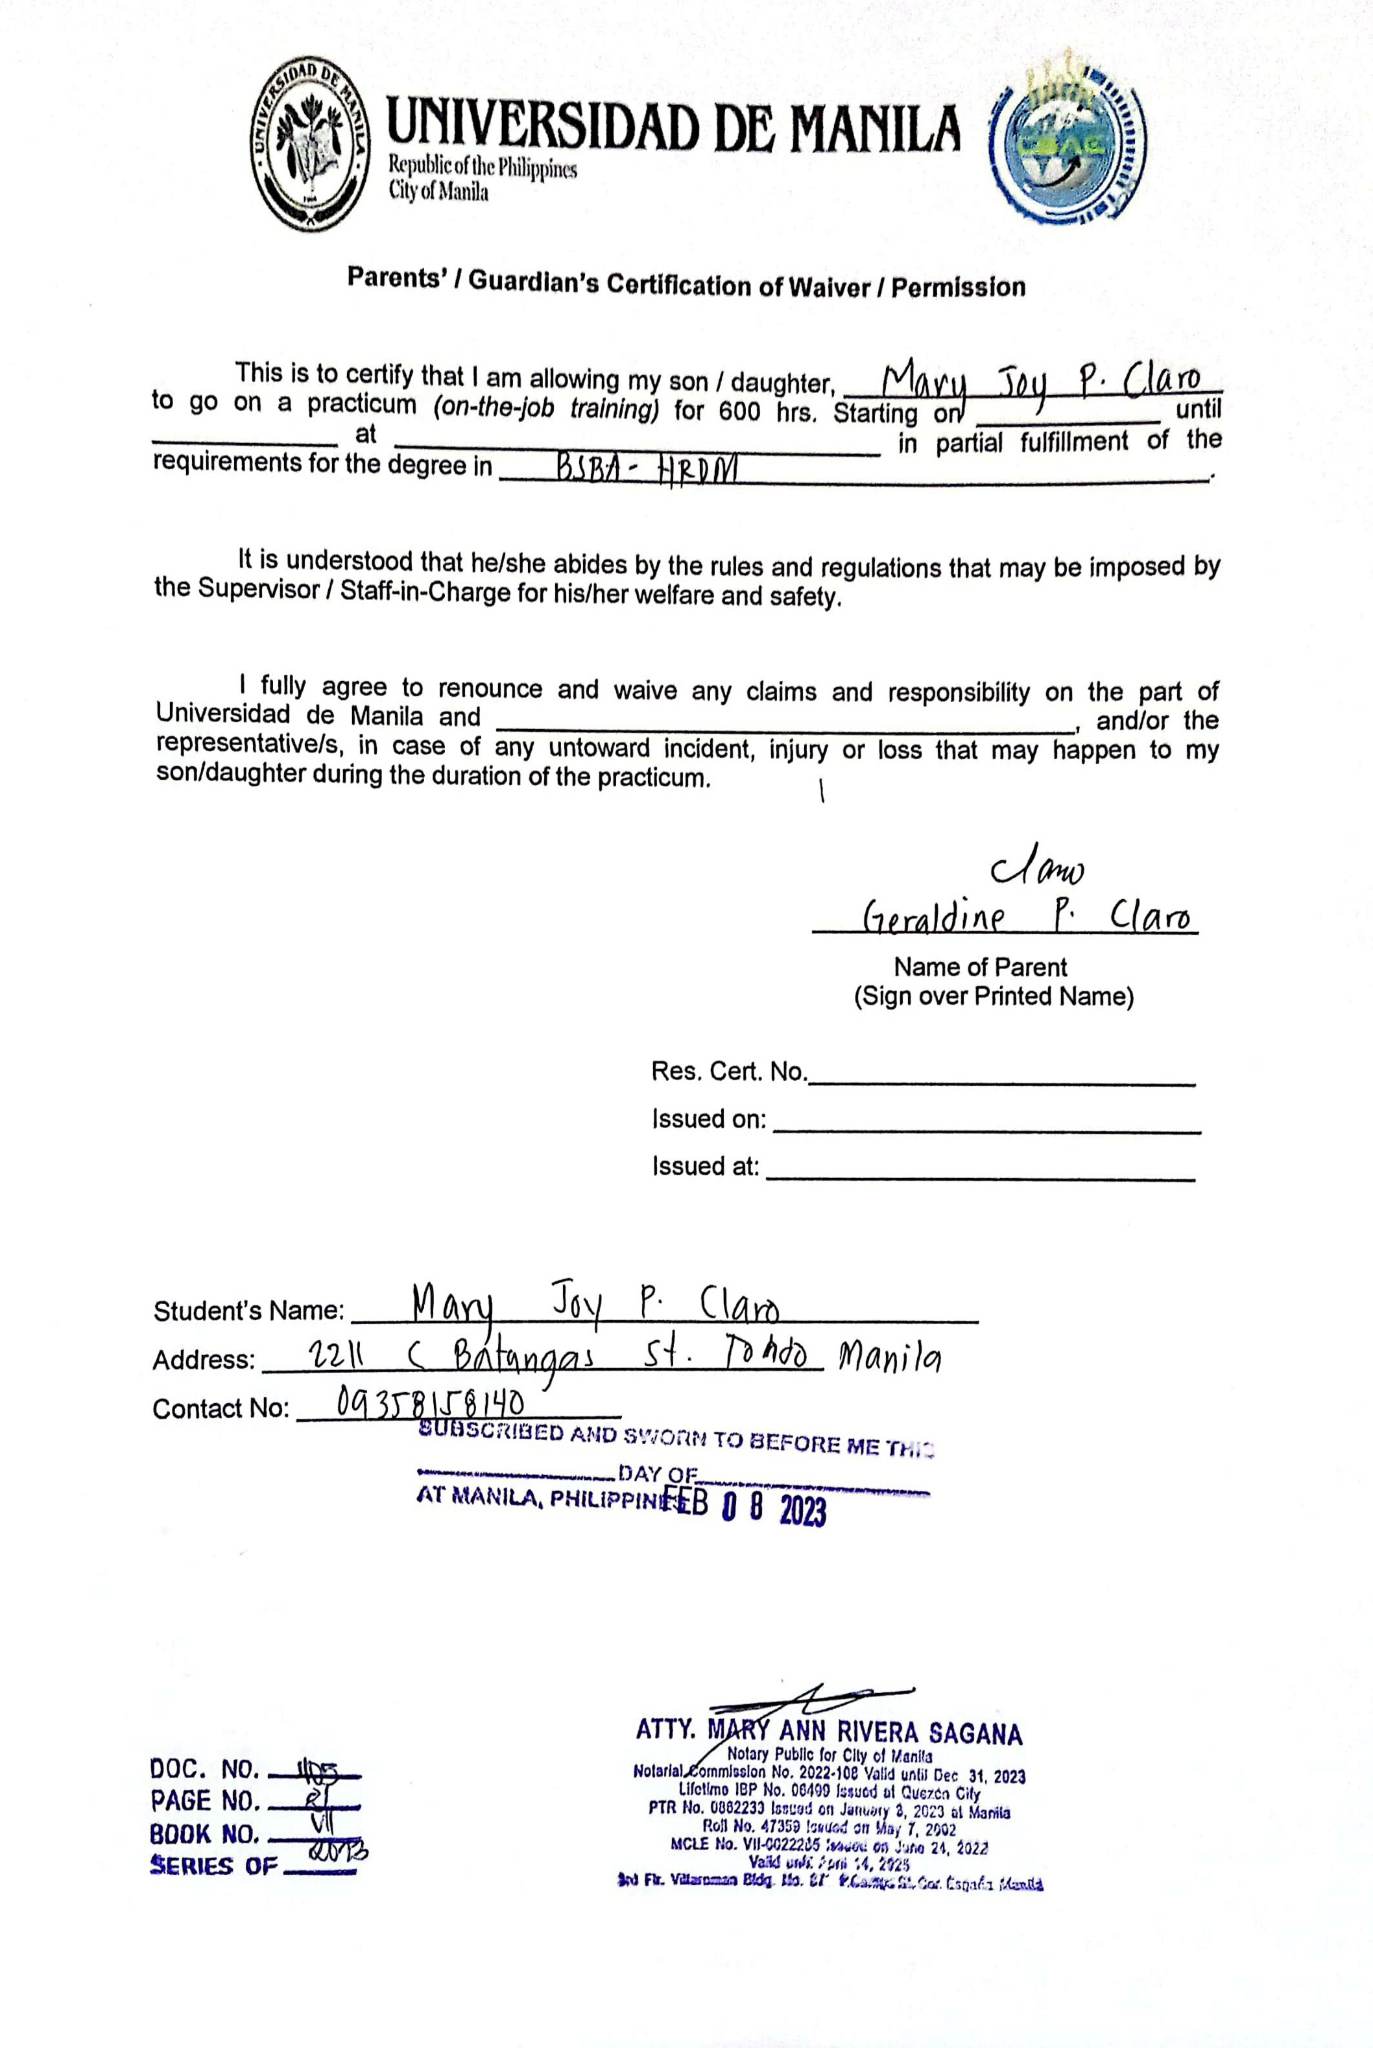 UNIVERSIDAD DE MANILA
UNIVERSIDAD DE MANILA
Republic of the Philippines
City of Manila
CBAE
Parents' / Guardian's Certification of Waiver / Permission
This is to certify that I am allowing my son / daughter, Mary Joy P. Claro
to go on a practicum (on-the-job training) for 600 hrs. Starting on ____________ until
____________ at ____________ in partial fulfillment of the
requirements for the degree in BSBA - HRDM.
It is understood that he/she abides by the rules and regulations that may be imposed by
the Supervisor / Staff-in-Charge for his/her welfare and safety.
I fully agree to renounce and waive any claims and responsibility on the part of
Universidad de Manila and ____________, and/or the
representative/s, in case of any untoward incident, injury or loss that may happen to my
son/daughter during the duration of the practicum.
Claro
Geraldine P. Claro
Name of Parent
(Sign over Printed Name)
Res. Cert. No.____________
Issued on: ____________
Issued at: ____________
Student's Name: Mary Joy P. Claro
Address: 2211 C Batangas St. Tondo Manila
Contact No: 09358158140
SUBSCRIBED AND SWORN TO BEFORE ME THIS
____________ DAY OF ____________
AT MANILA, PHILIPPINES
FEB 08 2023
ATTY. MARY ANN RIVERA SAGANA
Notary Public for City of Manila
Notarial Commission No. 2022-108 Valid until Dec 31, 2023
Lifetime IBP No. 06499 Issued at Quezon City
PTR No. 0862233 Issued on January 3, 2023 at Manila
Roll No. 47359 Issued on May 7, 2002
MCLE No. VII-0022285 Issued on June 24, 2022
Valid until April 14, 2025
3rd Flr. Villaroman Bldg. No. St. Cor. España Manila
DOC. NO.
PAGE NO.
BOOK NO. VII
SERIES OF 2023